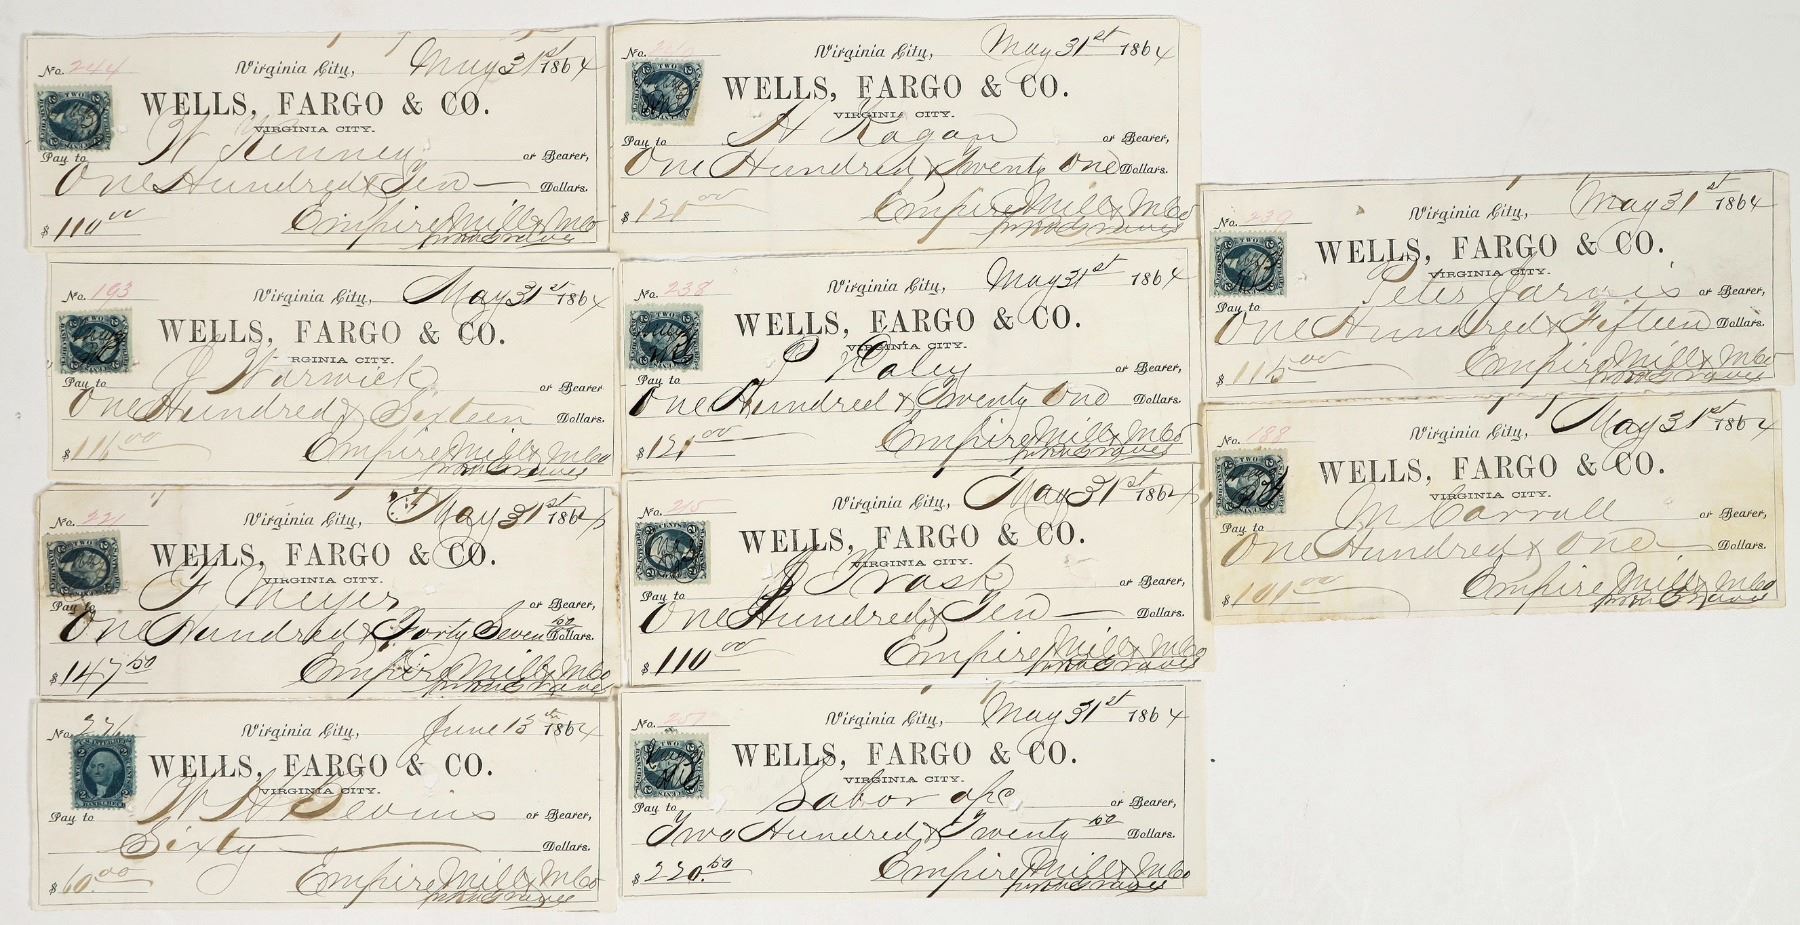 No. 244 Virginia City, May 31st 1864
WELLS, FARGO & CO.
VIRGINIA CITY.
Pay to W Kenney or Bearer,
One Hundred & Ten Dollars.
$ 110.00 Empire Mill & M Co
No. Virginia City, May 31st 1864
WELLS, FARGO & CO.
VIRGINIA CITY.
Pay to H Kagan or Bearer,
One Hundred & Twenty One Dollars.
$ 121.00 Empire Mill & M Co
No. 193 Virginia City, May 31st 1864
WELLS, FARGO & CO.
VIRGINIA CITY.
Pay to J Warwick or Bearer
One Hundred & Sixteen Dollars.
$ 116.00 Empire Mill & M Co
No. 238 Virginia City, May 31st 1864
WELLS, FARGO & CO.
VIRGINIA CITY.
Pay to Haley or Bearer,
One Hundred & Twenty One Dollars.
$ 121.00 Empire Mill & M Co
No. 221 Virginia City, May 31st 1864
WELLS, FARGO & CO.
VIRGINIA CITY.
Pay to F Meyer or Bearer,
One Hundred & Forty Seven 50 Dollars.
$ 147.50 Empire Mill & M Co
No. 215 Virginia City, May 31st 1864
WELLS, FARGO & CO.
VIRGINIA CITY.
Pay to J Trask or Bearer,
One Hundred & Ten Dollars.
$ 110.00 Empire Mill & M Co
No. 276 Virginia City, June 15th 1864
WELLS, FARGO & CO.
VIRGINIA CITY.
Pay to W H Bevins or Bearer,
Sixty Dollars.
$ 60.00 Empire Mill & M Co
No. 257 Virginia City, May 31st 1864
WELLS, FARGO & CO.
VIRGINIA CITY.
Pay to Labor a/c or Bearer,
Two Hundred & Twenty 50 Dollars.
$ 220.50 Empire Mill & M Co
No. 230 Virginia City, May 31st 1864
WELLS, FARGO & CO.
VIRGINIA CITY.
Pay to Peter Jarvis or Bearer,
One Hundred & Fifteen Dollars.
$ 115.00 Empire Mill & M Co
No. 188 Virginia City, May 31st 1864
WELLS, FARGO & CO.
VIRGINIA CITY.
Pay to M Carroll or Bearer,
One Hundred & One Dollars.
$ 101.00 Empire Mill & M Co